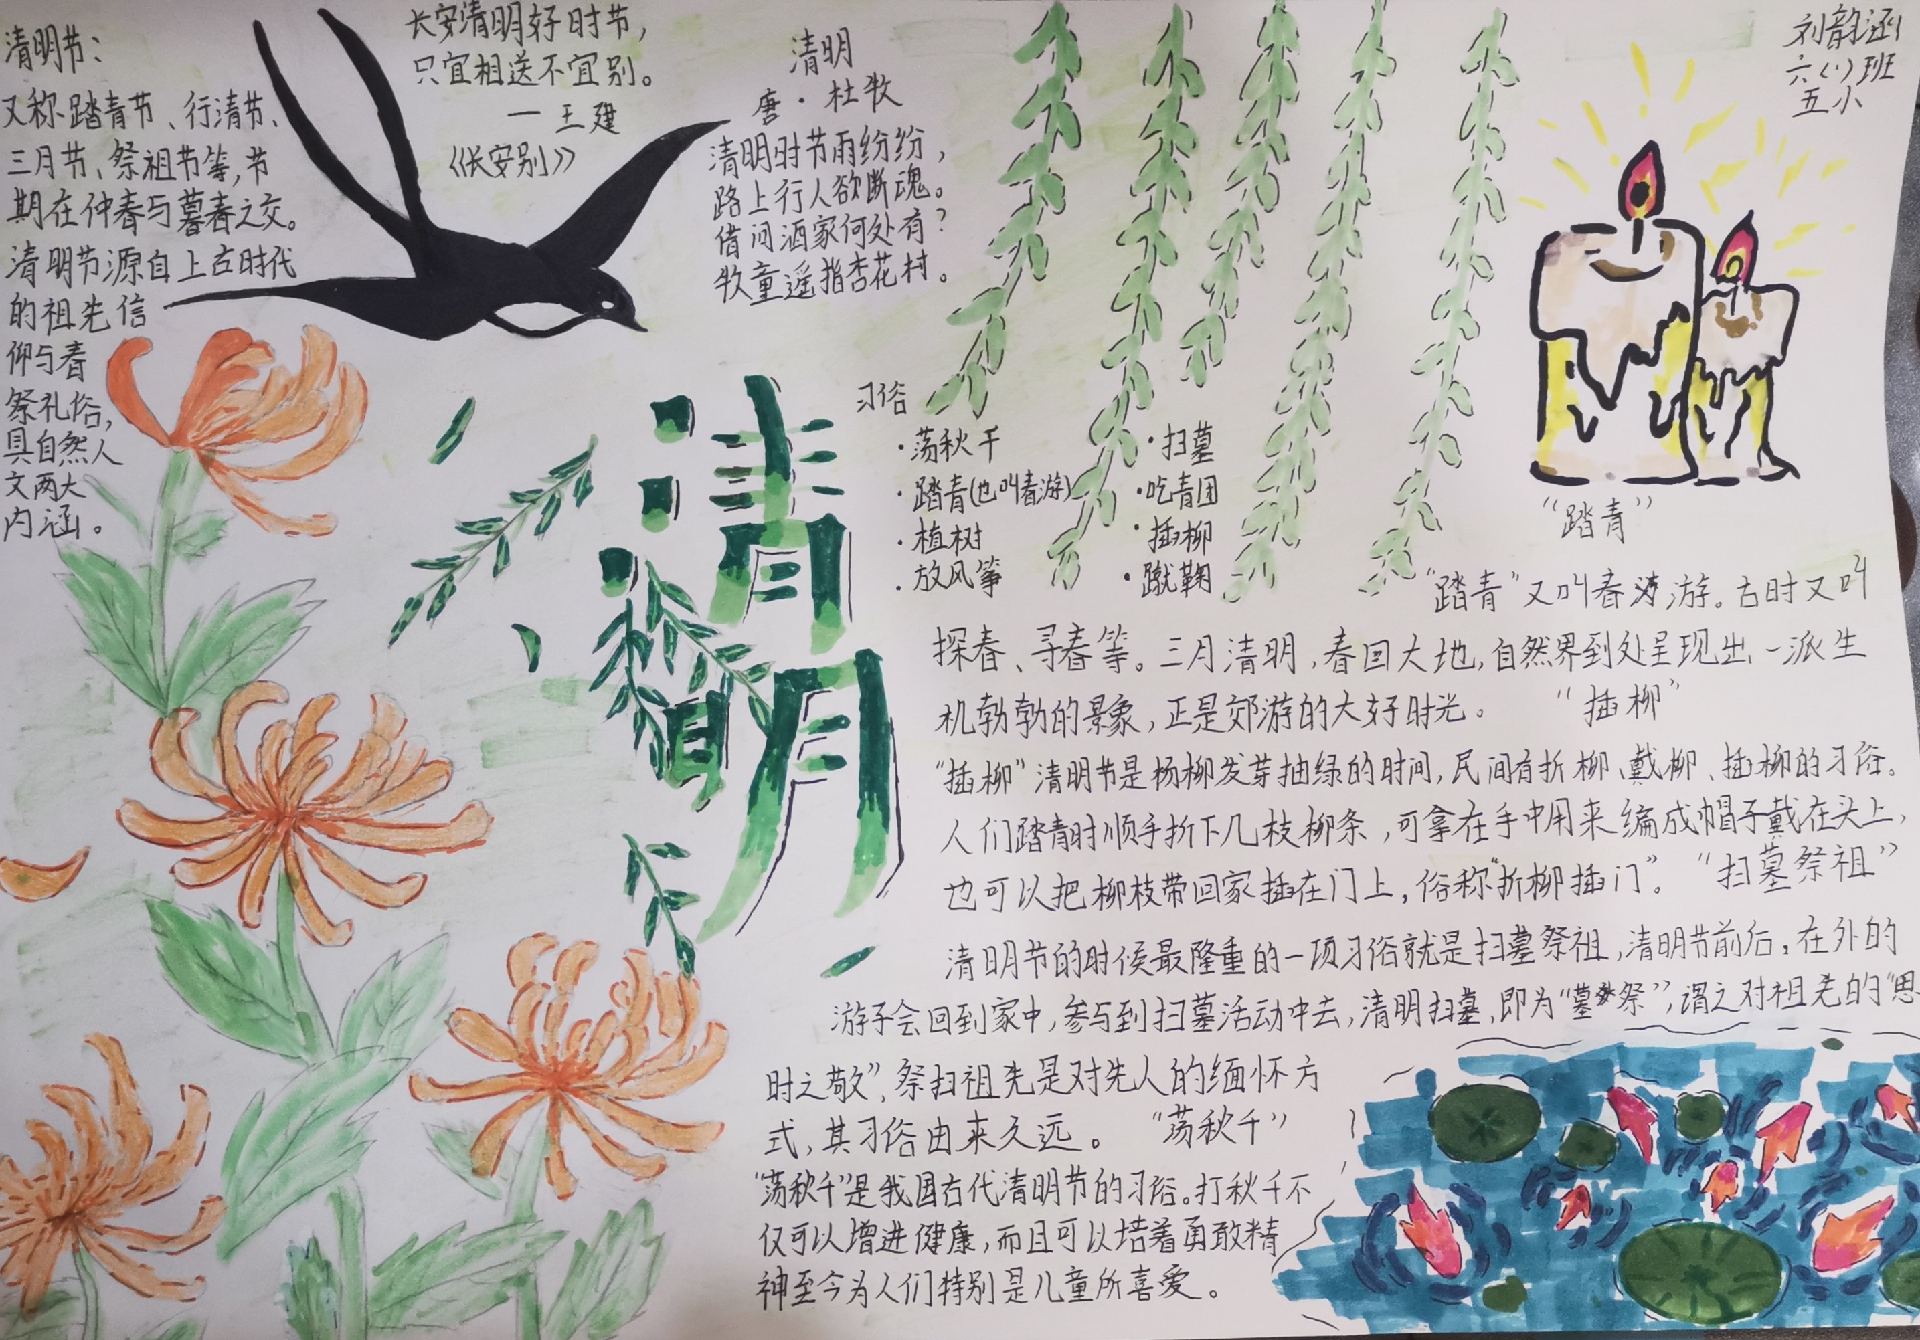 清明节：
又称踏青节、行清节、
三月节、祭祖节等，节
期在仲春与暮春之交。
清明节源自上古时代
的祖先信
仰与春
祭礼俗，
具自然人
文两大
内涵。
长安清明好时节，
只宜相送不宜别。
一王建
《长安别》
清明
唐·杜牧
清明时节雨纷纷，
路上行人欲断魂。
借问酒家何处有？
牧童遥指杏花村。
刘韵涵
六（1）班
五小
清明
习俗
·荡秋千
·踏青（也叫春游）
·植树
·放风筝
·扫墓
·吃青团
·插柳
·蹴鞠
“踏青”
“踏青”又叫春游。古时又叫
探春、寻春等。三月清明，春回大地，自然界到处呈现出一派生
机勃勃的景象，正是郊游的大好时光。 “插柳”
“插柳”清明节是杨柳发芽抽绿的时间，民间有折柳、戴柳、插柳的习俗。
人们踏青时顺手折下几枝柳条，可拿在手中用来编成帽子戴在头上，
也可以把柳枝带回家插在门上，俗称“折柳插门”。 “扫墓祭祖”
清明节的时候最隆重的一项习俗就是扫墓祭祖，清明节前后，在外的
游子会回到家中，参与到扫墓活动中去，清明扫墓，即为“墓祭”，谓之对祖先的“思
时之敬”，祭扫祖先是对先人的缅怀方
式，其习俗由来久远。 “荡秋千”
“荡秋千”是我国古代清明节的习俗。打秋千不
仅可以增进健康，而且可以培着勇敢精
神至今为人们特别是儿童所喜爱。